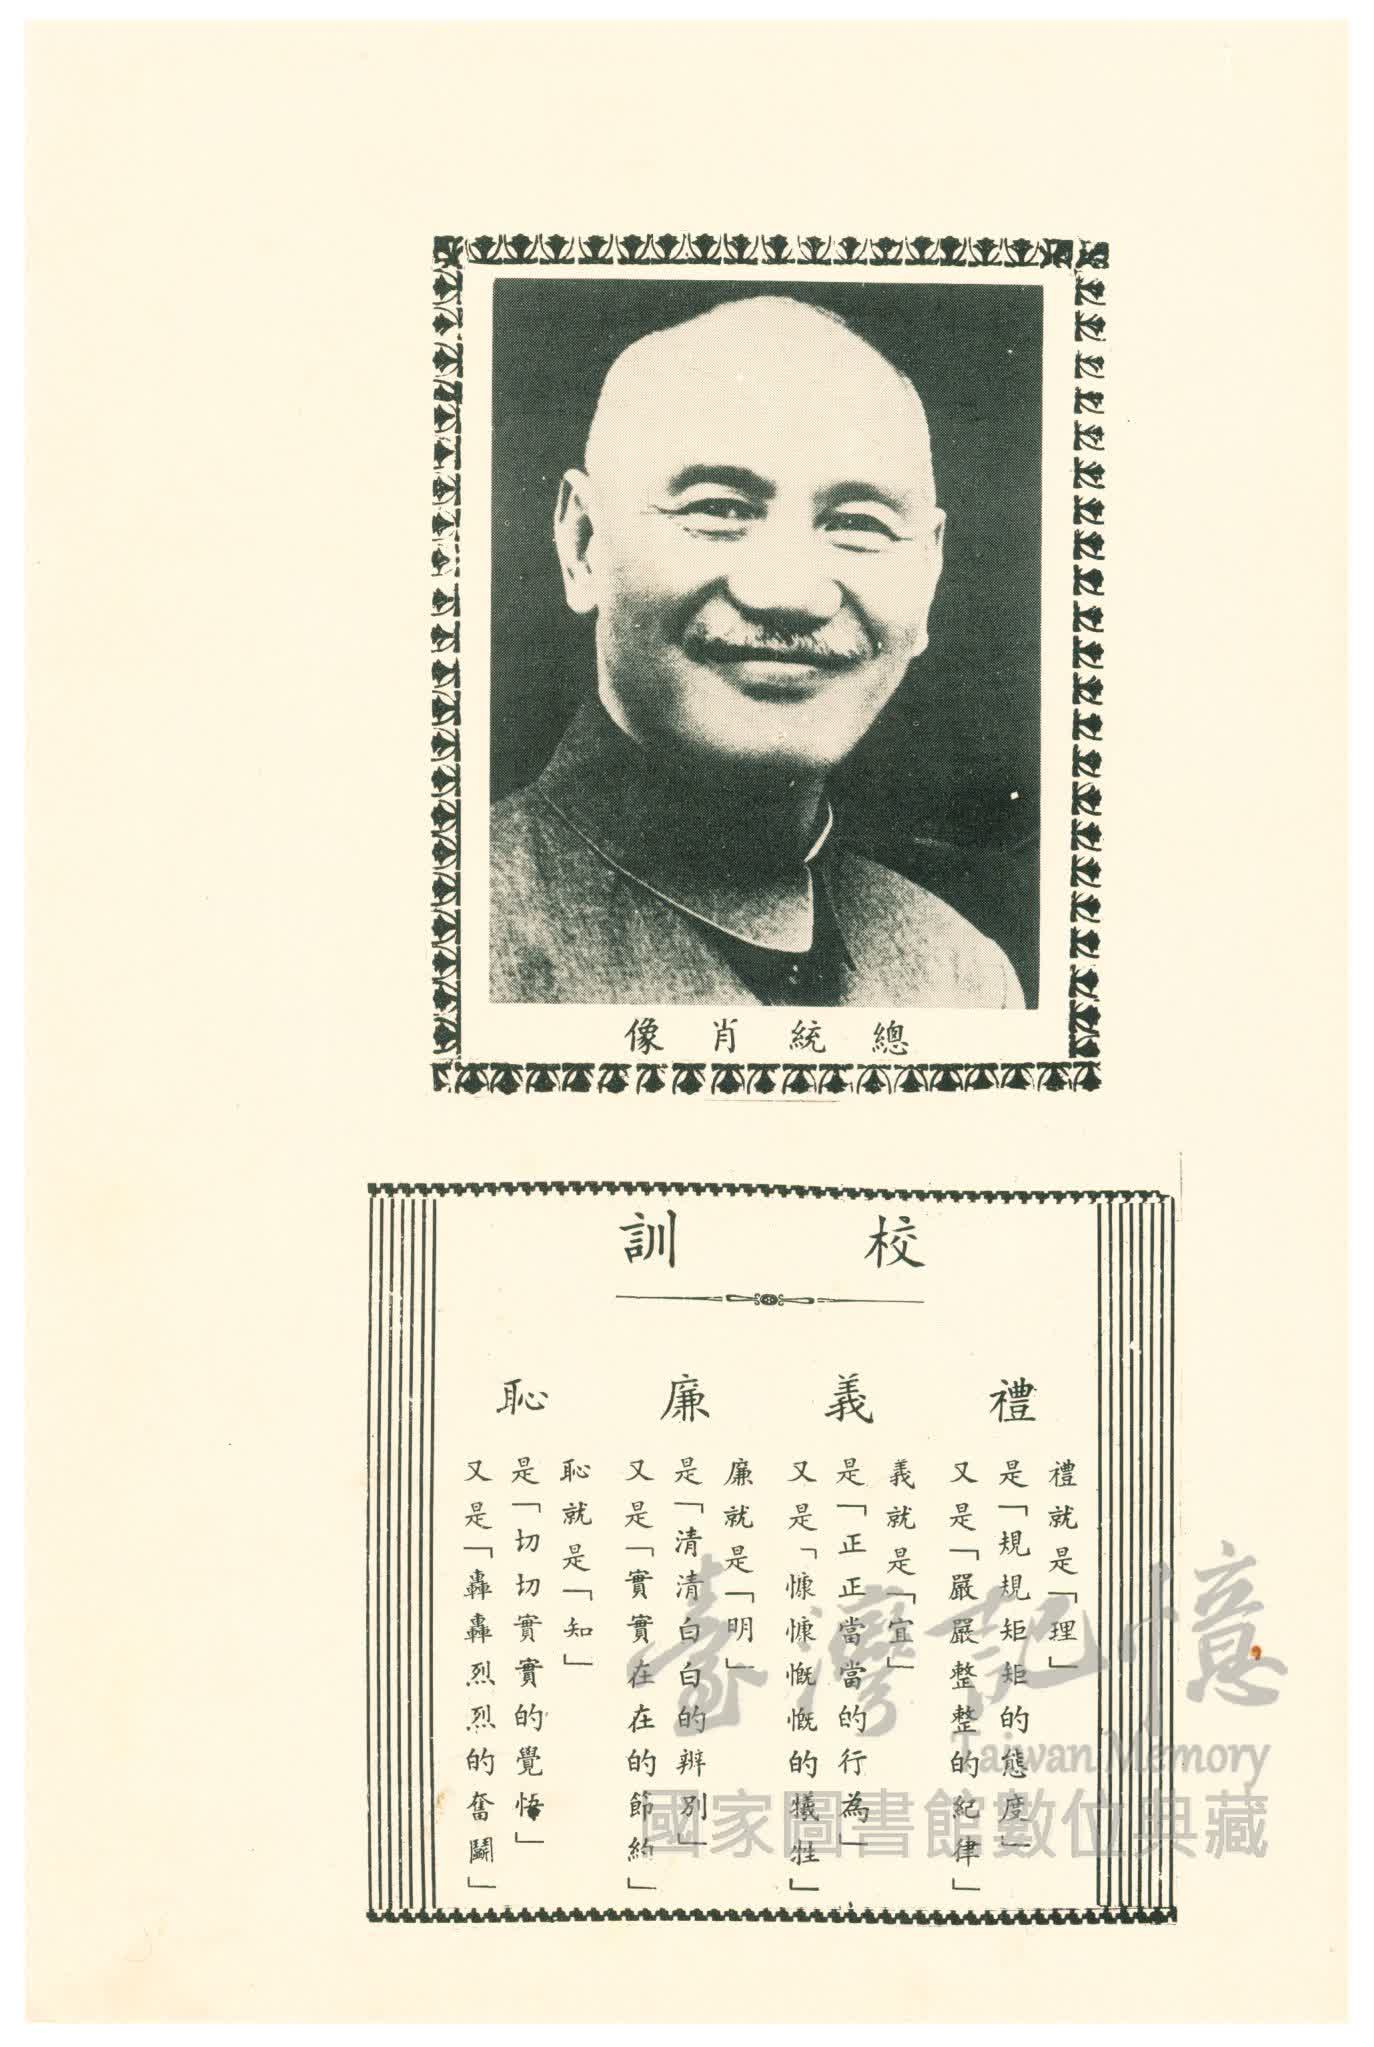 總統肖像
校訓
禮
禮就是「理」
是「規規矩矩的態度」
又是「嚴嚴整整的紀律」
義
義就是「宜」
是「正正當當的行為」
又是「慷慷慨慨的犧牲」
廉
廉就是「明」
是「清清白白的辨別」
又是「實實在在的節約」
恥
恥就是「知」
是「切切實實的覺悟」
又是「轟轟烈烈的奮鬪」
臺灣記憶
Taiwan Memory
國家圖書館數位典藏